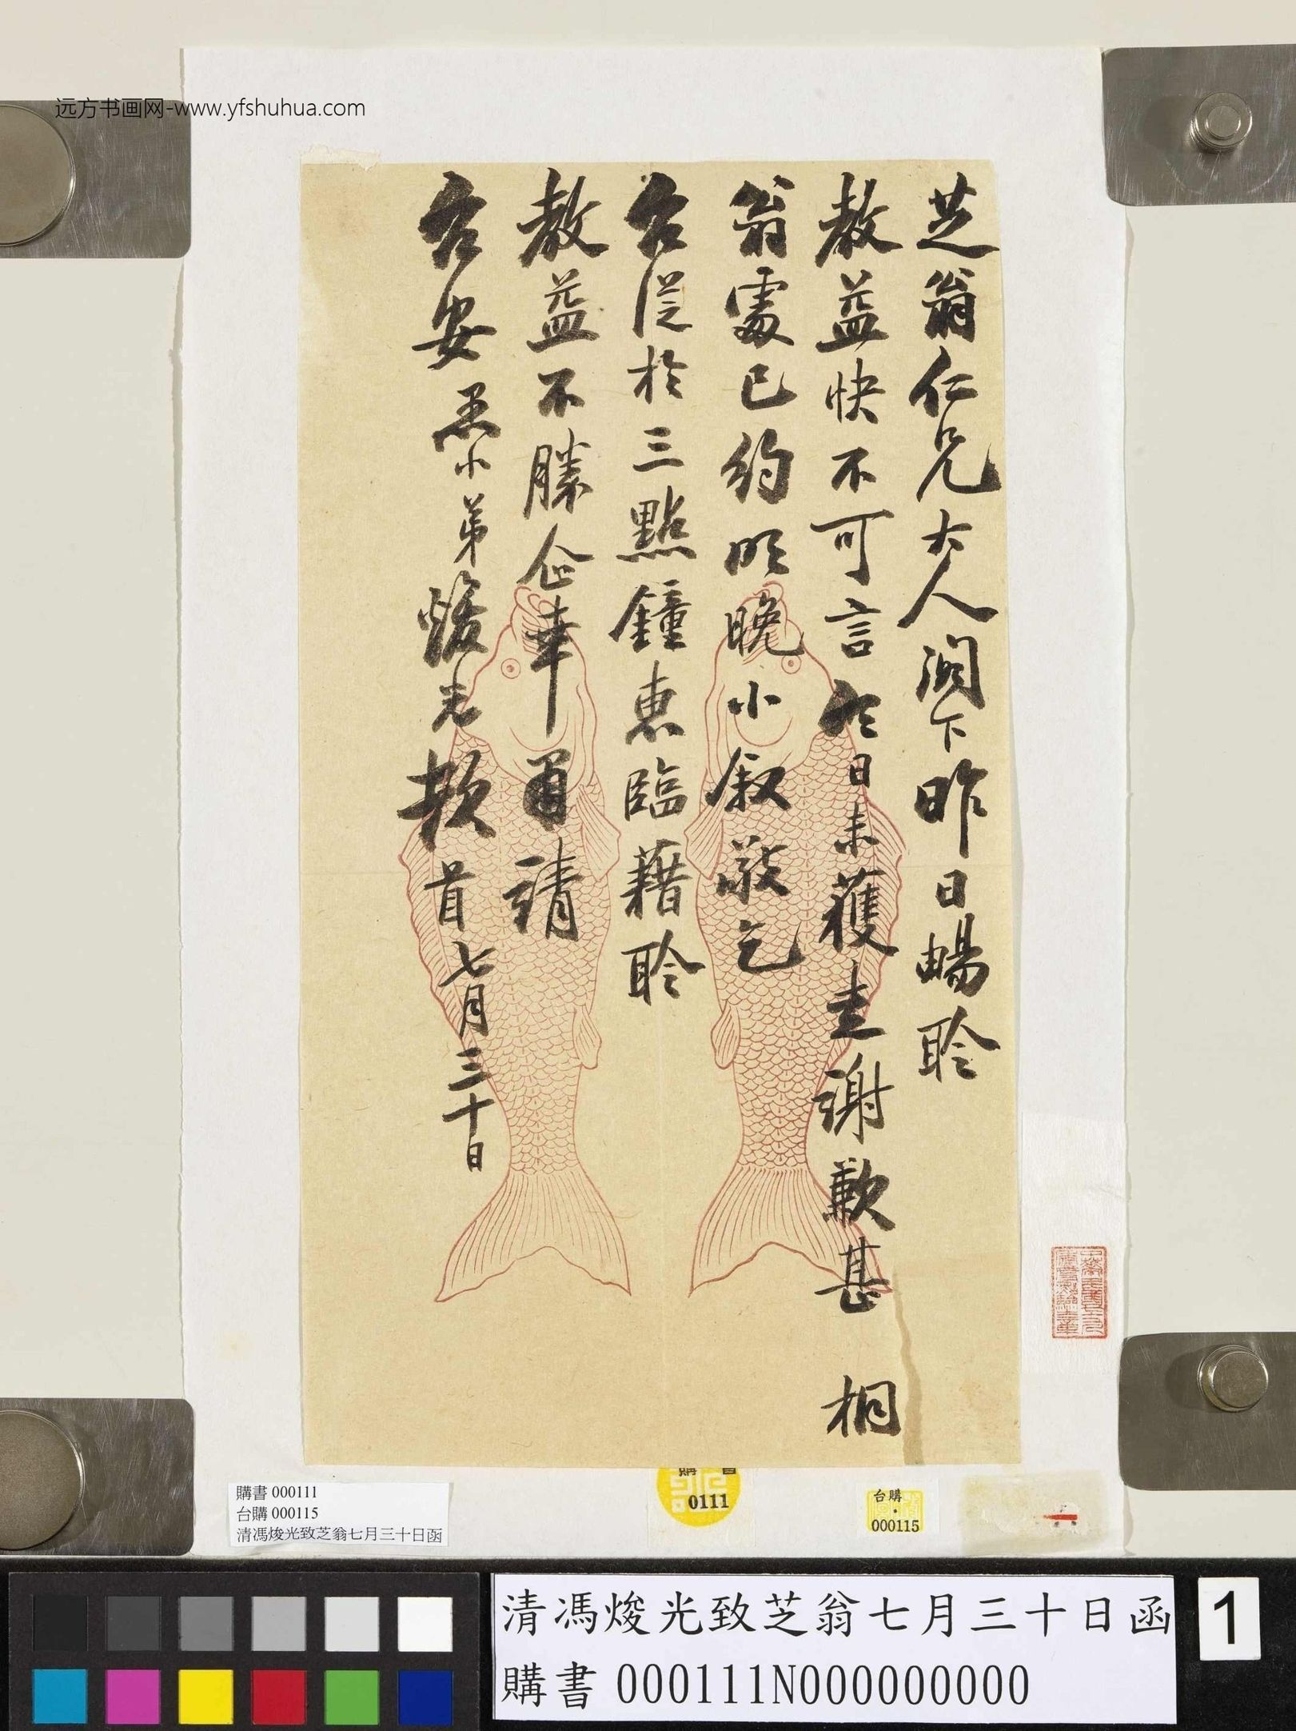 远方书画网-www.yfshuhua.com
芝翁仁兄大人阁下昨日暢聆
教益快不可言今日未獲走謝歉甚 桐
翁處已約明晚小敘敬乞
台從於三點鐘惠臨藉聆
教益不勝企幸耑請
台安 愚小弟焌光頓首七月三十日
購書 000111
台購 000115
清馮焌光致芝翁七月三十日函
購書
0111
台購
000115
清馮焌光致芝翁七月三十日函
購書 000111N000000000
1